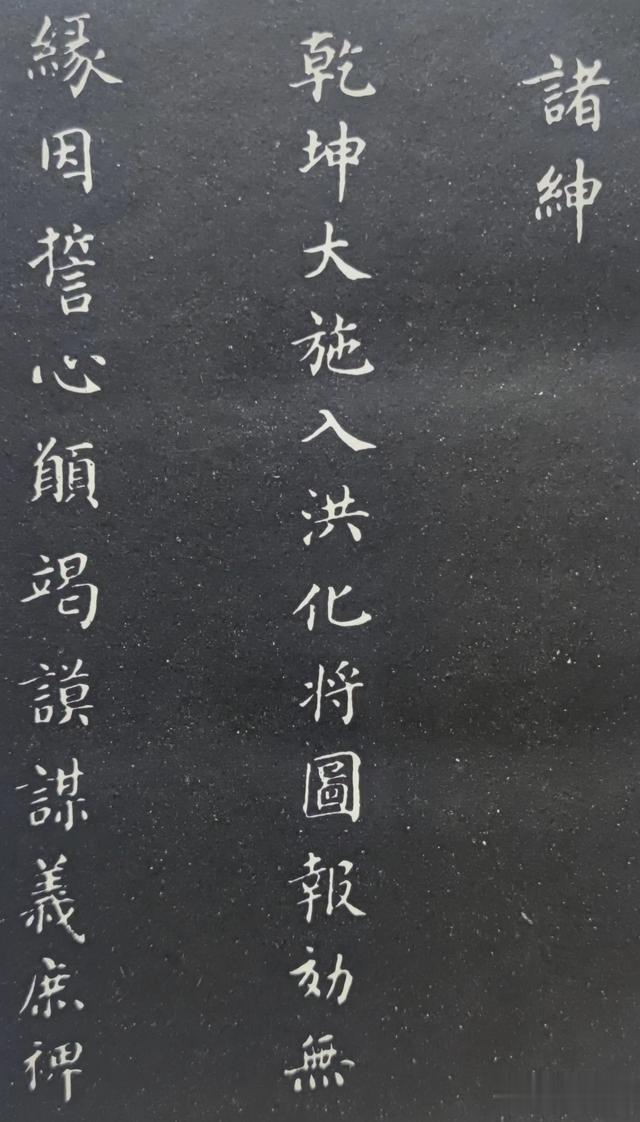 諸紳
乾坤大施入洪化将圖報効無
縁因誓心願竭謨謀義庶裨